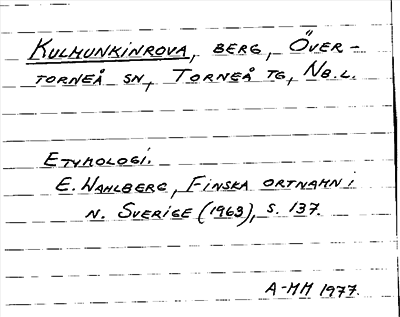 KULMUNKINROVA, BERG, ÖVER-
TORNEÅ SN, TORNEÅ TG, NB.L.
ETYMOLOGI.
E. WAHLBERG, FINSKA ORTNAMN I
N. SVERIGE (1963), S. 137.
A-MM 1977.